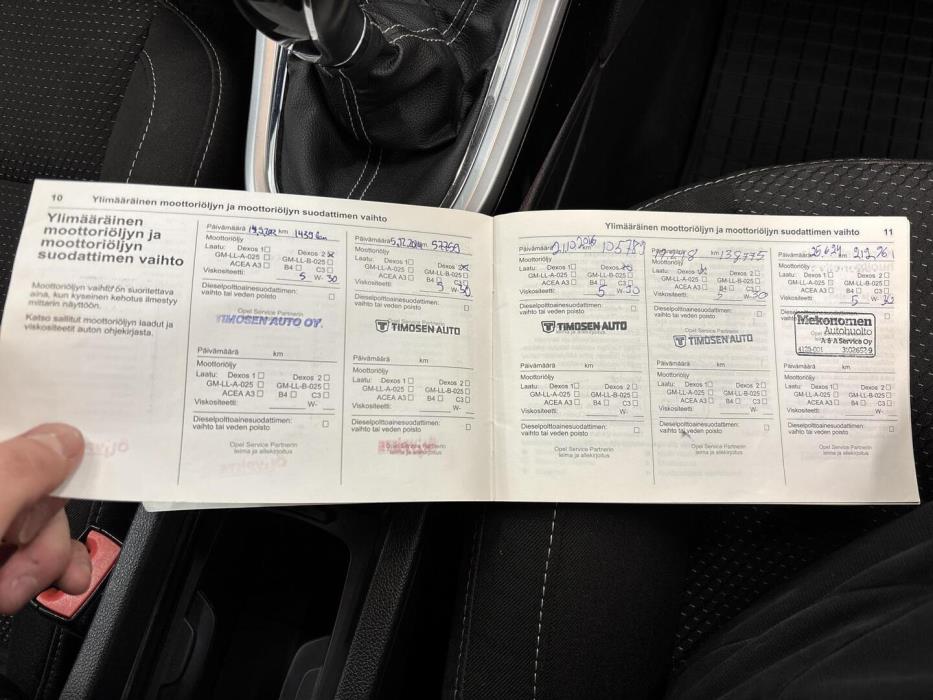 10 Ylimääräinen moottoriöljyn ja moottoriöljyn suodattimen vaihto
Ylimääräinen
moottoriöljyn ja
moottoriöljyn
suodattimen vaihto
Moottoriöljyn vaihto on suoritettava
aina, kun kyseinen kehotus ilmestyy
mittarin näyttöön.
Katso sallitut moottoriöljyn laadut ja
viskositeetit auton ohjekirjasta.
Päivämäärä km
Moottoriöljy
Laatu: Dexos 1 Dexos 2
GM-LL-A-025 GM-LL-B-025
ACEA A3 B4 C3
Viskositeetti: 5 W-30
Dieselpolttoainesuodattimen:
vaihto tai veden poisto
Opel Service Partnerin
TIMOSEN AUTO OY.
Päivämäärä km
Moottoriöljy
Laatu: Dexos 1 Dexos 2
GM-LL-A-025 GM-LL-B-025
ACEA A3 B4 C3
Viskositeetti: W-
Dieselpolttoainesuodattimen:
vaihto tai veden poisto
Opel Service Partnerin
leima ja allekirjoitus
Päivämäärä 5.12.2014 km 57760
Moottoriöljy
Laatu: Dexos 1 Dexos 2
GM-LL-A-025 GM-LL-B-025
ACEA A3 B4 C3
Viskositeetti: 5 W-30
Dieselpolttoainesuodattimen:
vaihto tai veden poisto
TIMOSEN AUTO
Päivämäärä km
Moottoriöljy
Laatu: Dexos 1 Dexos 2
GM-LL-A-025 GM-LL-B-025
ACEA A3 B4 C3
Viskositeetti: W-
Dieselpolttoainesuodattimen:
vaihto tai veden poisto
Opel Service Partnerin
leima ja allekirjoitus
Ylimääräinen moottoriöljyn ja moottoriöljyn suodattimen vaihto 11
Päivämäärä 21.10.2016 km 105789
Moottoriöljy
Laatu: Dexos 1 Dexos 2
GM-LL-A-025 GM-LL-B-025
ACEA A3 B4 C3
Viskositeetti: 5 W-30
Dieselpolttoainesuodattimen:
vaihto tai veden poisto
TIMOSEN AUTO
Päivämäärä km
Moottoriöljy
Laatu: Dexos 1 Dexos 2
GM-LL-A-025 GM-LL-B-025
ACEA A3 B4 C3
Viskositeetti: W-
Dieselpolttoainesuodattimen:
vaihto tai veden poisto
Opel Service Partnerin
leima ja allekirjoitus
Päivämäärä km
Moottoriöljy
Laatu: Dexos 1 Dexos 2
GM-LL-A-025 GM-LL-B-025
ACEA A3 B4 C3
Viskositeetti: 5 W-30
Dieselpolttoainesuodattimen:
vaihto tai veden poisto
Opel Service Partnerin
TIMOSEN AUTO
Päivämäärä km
Moottoriöljy
Laatu: Dexos 1 Dexos 2
GM-LL-A-025 GM-LL-B-025
ACEA A3 B4 C3
Viskositeetti: W-
Dieselpolttoainesuodattimen:
vaihto tai veden poisto
Opel Service Partnerin
leima ja allekirjoitus
Päivämäärä km
Moottoriöljy
Laatu: Dexos 1 Dexos 2
GM-LL-A-025 GM-LL-B-025
ACEA A3 B4 C3
Viskositeetti: 5 W-30
Dieselpolttoainesuodattimen:
Mekonomen
Autohuolto
A & A Service Oy
4123-001
Päivämäärä km
Moottoriöljy
Laatu: Dexos 1 Dexos 2
GM-LL-A-025 GM-LL-B-025
ACEA A3 B4 C3
Viskositeetti: W-
Dieselpolttoainesuodattimen:
vaihto tai veden poisto
Opel Service Partnerin
leima ja allekirjoitus